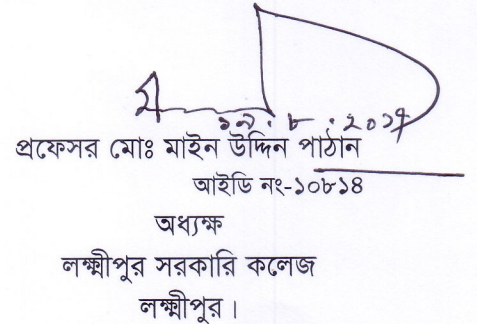 ১৯.৮.২০১৭
প্রফেসর মোঃ মাইন উদ্দিন পাঠান
আইডি নং-১০৮১৪
অধ্যক্ষ
লক্ষ্মীপুর সরকারি কলেজ
লক্ষ্মীপুর।